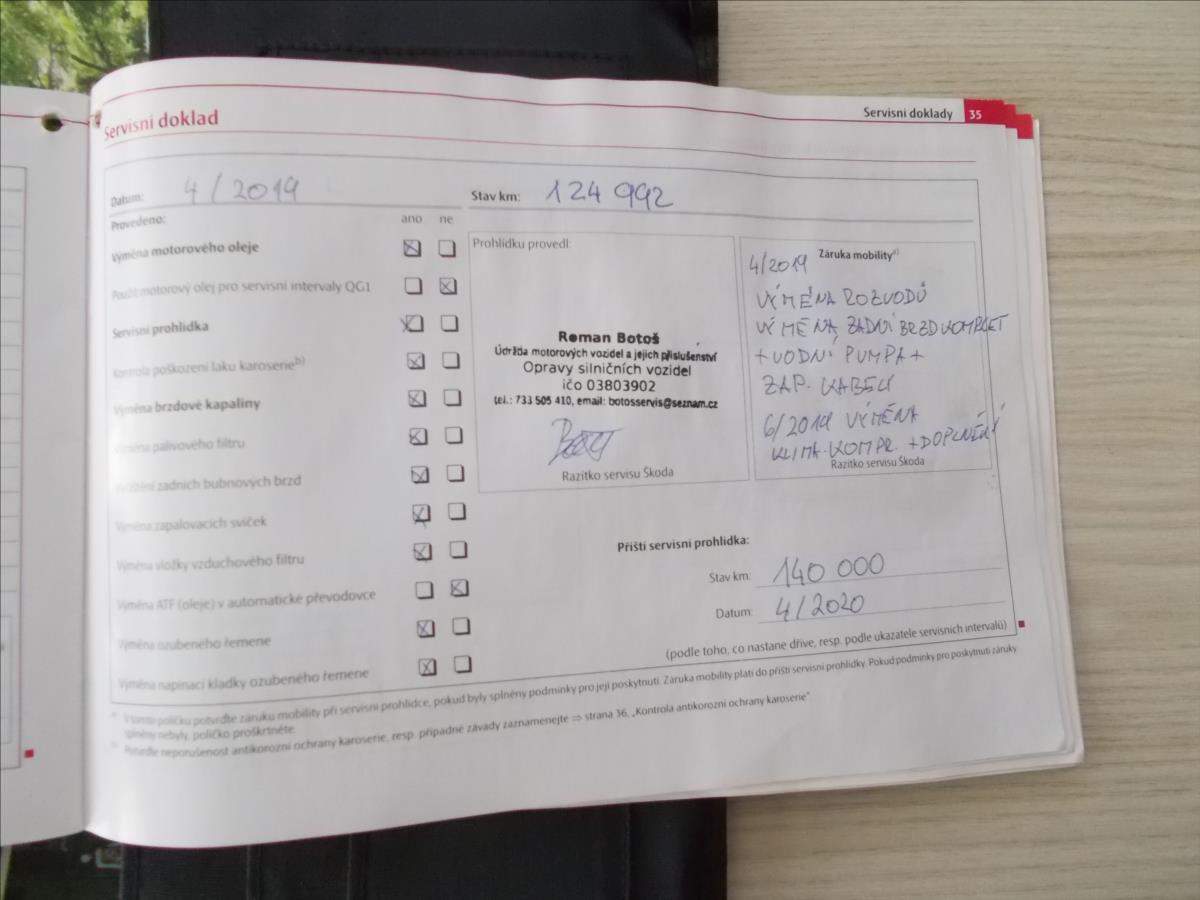 Servisní doklady 35
Servisní doklad
Datum: 4/2019
Stav km: 124 992
Provedeno: ano ne
Výměna motorového oleje
Použit motorový olej pro servisní intervaly QG1
Servisní prohlídka
Kontrola poškození laku karoserie b)
Výměna brzdové kapaliny
Výměna palivového filtru
zadních bubnových brzd
Výměna zapalovacích svíček
Výměna vložky vzduchového filtru
Výměna ATF (oleje) v automatické převodovce
Výměna ozubeného řemene
Výměna napínací kladky ozubeného řemene
Prohlídku provedl:
Roman Botoš
Údržba motorových vozidel a jejich příslušenství
Opravy silničních vozidel
ičo 03803902
tel.: 733 505 410, email: botosservis@seznam.cz
Razítko servisu Škoda
Záruka mobility a)
4/2019
VÝMĚNA ROZVODŮ
VÝMĚNA ZADNÍ BRZD KOMPLET
+ VODNÍ PUMPA +
ZAP. KABELY
6/2019 VÝMĚNA
KLIMA-KOMPR. + DOPLNĚNÝ
Razítko servisu Škoda
Příští servisní prohlídka:
Stav km: 140 000
Datum: 4/2020
(podle toho, co nastane dříve, resp. podle ukazatele servisních intervalů)
a) V tomto políčku potvrďte záruku mobility při servisní prohlídce, pokud byly splněny podmínky pro její poskytnutí. Záruka mobility platí do příští servisní prohlídky. Pokud podmínky pro poskytnutí záruky
splněny nebyly, políčko proškrtněte.
b) Potvrďte neporušenost antikorozní ochrany karoserie, resp. případné závady zaznamenejte ⇒ strana 36, „Kontrola antikorozní ochrany karoserie“